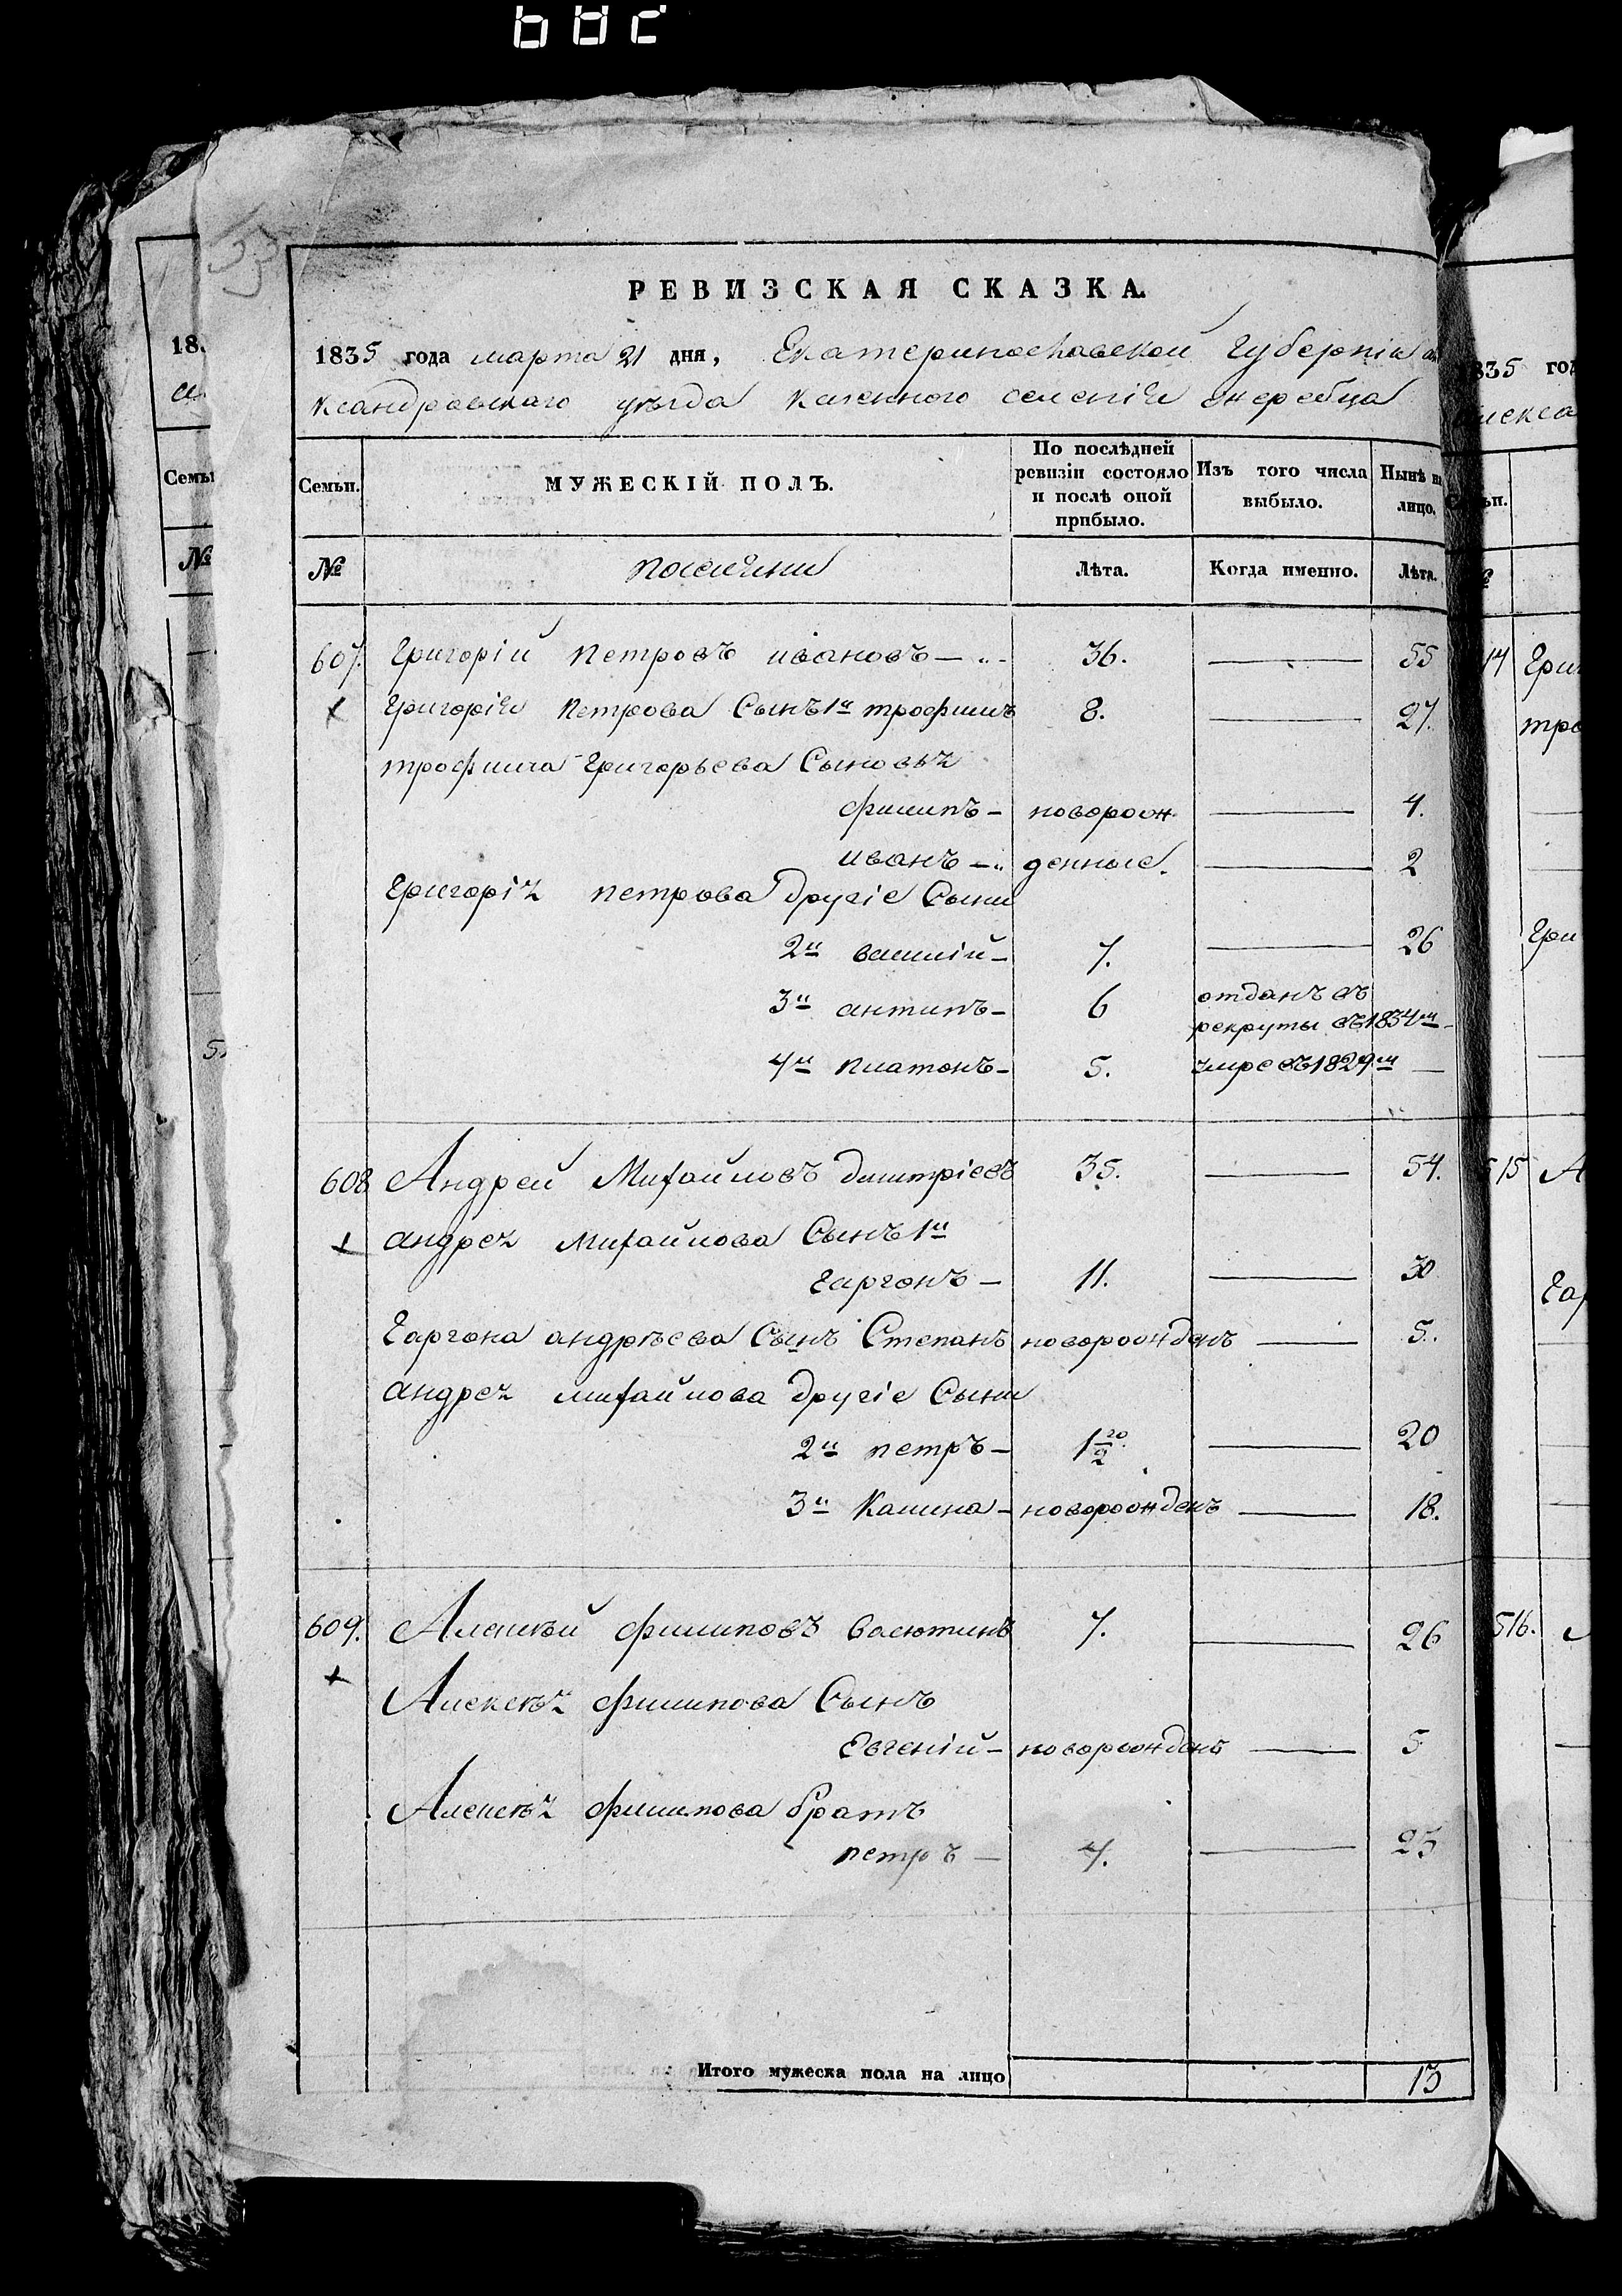 РЕВИЗСКАЯ СКАЗКА.
1835 года марта 21 дня, Екатеринославской Губерніи але
ксандровскаго уѣзда казенного селенія жеребца
Семьи.
МУЖЕСКІЙ ПОЛЪ.
По послѣдней ревизіи состояло и послѣ оной прибыло.
Изъ того числа выбыло.
Нынѣ на лицо.
№
поселяни
Лѣта.
Когда именно.
Лѣта.
607. Григорій Петровъ ивановъ 36. — 55
Григорія Петрова Сынъ 1й трофимъ 8. — 27.
трофима Григорьева Сыновья
филипъ — новорож — 4.
иванъ — денные. — 2
Григорія петрова другіе Сыни
2й василій — 7. — 26
3й антипъ — 6 отданъ въ
рекруты въ 1834м —
4й платонъ — 5. умре въ 1829м —
608 Андрей Михайловъ дмитріевъ 35. — 54.
андрея Михайлова Сынъ 1й
Гаргонъ — 11. — 30
Гаргона андрѣева Сынъ Степанъ новорожденъ — 5.
андрея михайлова другіе Сыни
2й петръ — 1 20/2 — 20
3й Калина — новорожденъ — 18.
609. Алексѣй филиповъ васютинъ 7. — 26
Алексѣя филипова Сынъ
Евгеній — новорожденъ — 5
Алексѣя филипова братъ
петръ — 4. — 23
Итого мужеска пола на лицо 13